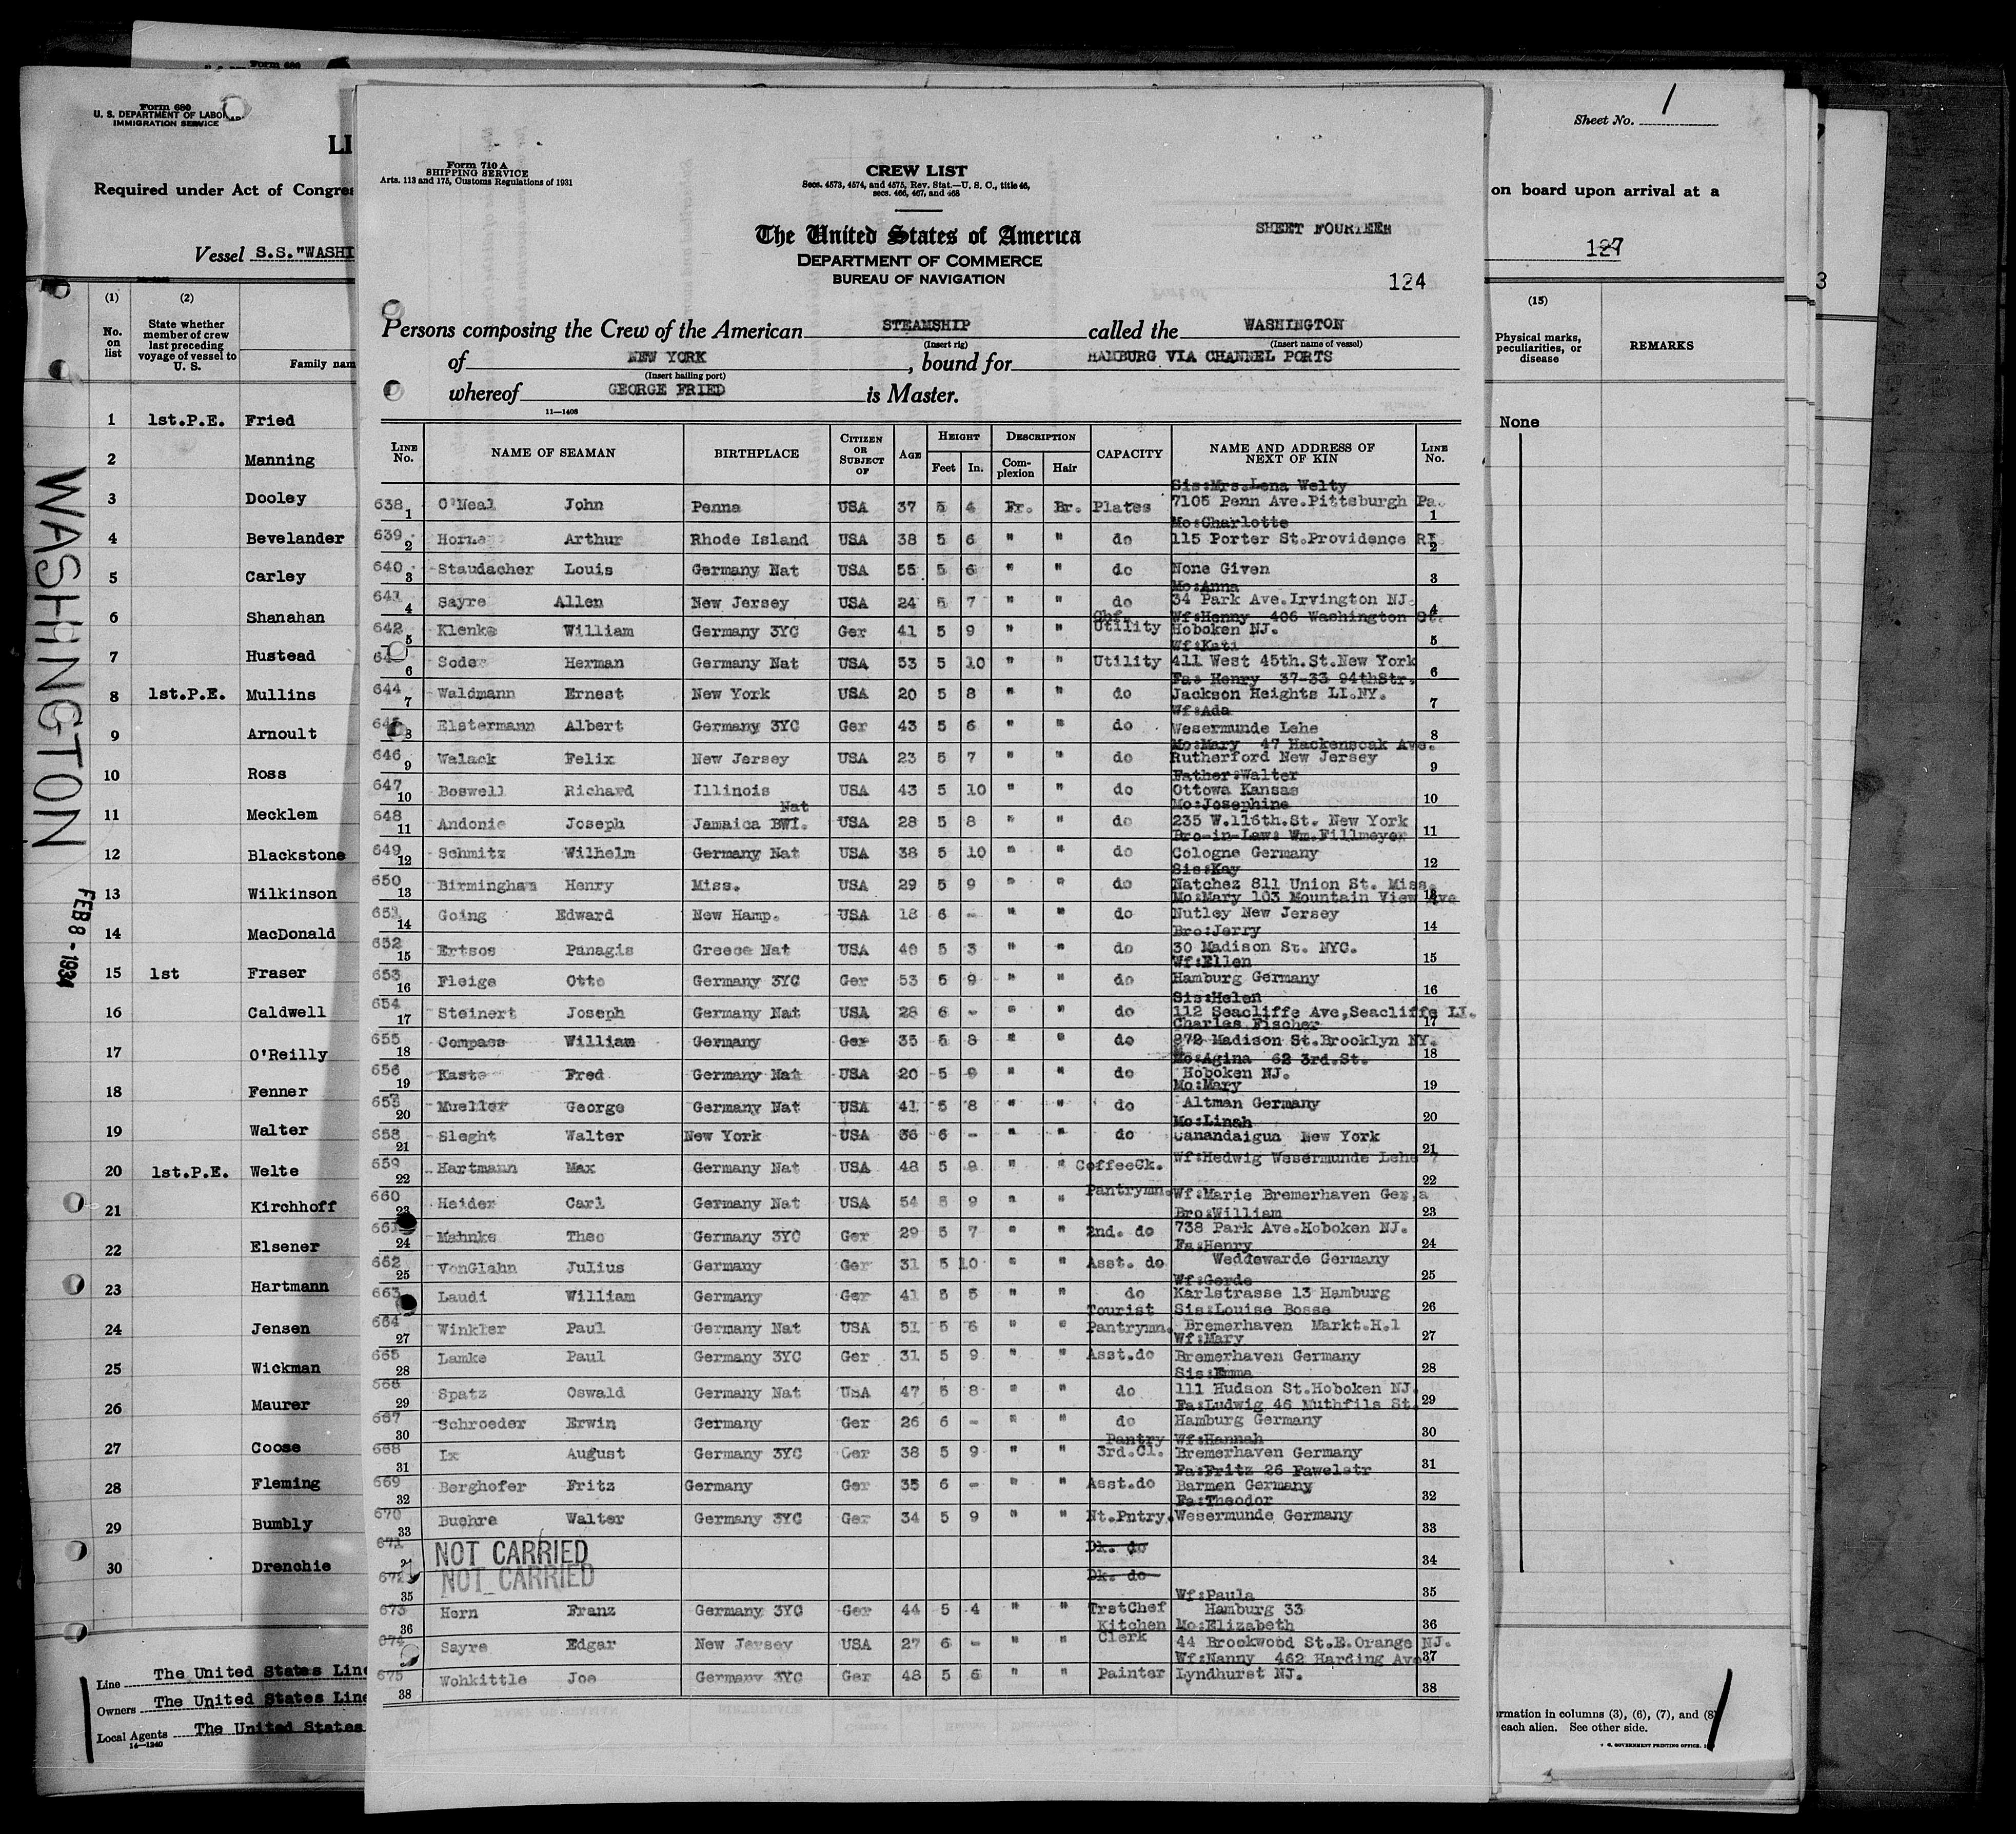 Form 680
U. S. DEPARTMENT OF LABOR
IMMIGRATION SERVICE
LI
Required under Act of Congre
Vessel S.S."WASHI
(1) (2)
No. on list
State whether member of crew last preceding voyage of vessel to U. S.
Family nam
1 1st.P.E. Fried
2 Manning
3 Dooley
4 Bevelander
5 Carley
6 Shanahan
7 Hustead
8 1st.P.E. Mullins
9 Arnoult
10 Ross
11 Mecklem
12 Blackstone
13 Wilkinson
14 MacDonald
15 1st Fraser
16 Caldwell
17 O'Reilly
18 Fenner
19 Walter
20 1st.P.E. Welte
21 Kirchhoff
22 Elsener
23 Hartmann
24 Jensen
25 Wickman
26 Maurer
27 Coose
28 Fleming
29 Bumbly
30 Drenchie
Line The United States Line
Owners The United States Line
Local Agents The United States
14—1240
WASHINGTON
FEB 8 - 1934
Form 710 A
SHIPPING SERVICE
Arts. 113 and 175, Customs Regulations of 1931
CREW LIST
Secs. 4573, 4574, and 4575, Rev. Stat.—U. S. C., title 46,
secs. 466, 467, and 468
The United States of America
DEPARTMENT OF COMMERCE
BUREAU OF NAVIGATION
SHEET FOURTEEN
124
Persons composing the Crew of the American STEAMSHIP called the WASHINGTON
(Insert rig) (Insert name of vessel)
of NEW YORK, bound for HAMBURG VIA CHANNEL PORTS
(Insert hailing port)
whereof GEORGE FRIED is Master.
11—1408
LINE No. NAME OF SEAMAN BIRTHPLACE CITIZEN OR SUBJECT OF AGE HEIGHT Feet In. DESCRIPTION Complexion Hair CAPACITY NAME AND ADDRESS OF NEXT OF KIN LINE No.
Sis:Mrs.Lena Welty
638 1 O'Neal John Penna USA 37 5 4 Fr. Br. Plates 7105 Penn Ave.Pittsburgh Pa. 1
Mo:Charlotte
639 2 Horne Arthur Rhode Island USA 38 5 6 " " do 115 Porter St.Providence RI 2
640 3 Staudacher Louis Germany Nat USA 55 5 6 " " do None Given 3
Mo:Anna
641 4 Sayre Allen New Jersey USA 24 5 7 " " do 34 Park Ave.Irvington NJ. 4
Chf. Wf:Henny 406 Washington St.
642 5 Klenke William Germany 3YC Ger 41 5 9 " " Utility Hoboken NJ. 5
Wf:Kati
64 6 Soder Herman Germany Nat USA 53 5 10 " " Utility 411 West 45th.St.New York 6
Fa: Henry 37-33 94thStr.
644 7 Waldmann Ernest New York USA 20 5 8 " " do Jackson Heights LI.NY. 7
Wf:Ada
645 8 Elstermann Albert Germany 3YC Ger 43 5 6 " " do Wesermunde Lehe 8
Mo:Mary 47 Hackenscak Ave.
646 9 Walack Felix New Jersey USA 23 5 7 " " do Rutherford New Jersey 9
Father:Walter
647 10 Boswell Richard Illinois USA 43 5 10 " " do Ottowa Kansas 10
Nat Mo:Josephine
648 11 Andonie Joseph Jamaica BWI. USA 28 5 8 " " do 235 W.116th.St. New York 11
Bro-in-Law: Wm.Fillmeyer
649 12 Schmitz Wilhelm Germany Nat USA 38 5 10 " " do Cologne Germany 12
Sis:Kay
650 13 Birmingham Henry Miss. USA 29 5 9 " " do Natchez 811 Union St. Miss. 13
Mo:Mary 103 Mountain View Ave
651 14 Going Edward New Hamp. USA 18 6 - " " do Nutley New Jersey 14
Bro:Jerry
652 15 Ertsos Panagis Greece Nat USA 40 5 3 " " do 30 Madison St. NYC. 15
Wf:Ellen
653 16 Fleige Otto Germany 3YC Ger 53 5 9 " " do Hamburg Germany 16
Sis:Helen
654 17 Steinert Joseph Germany Nat USA 28 6 - " " do 112 Seacliffe Ave,Seacliffe LI. 17
Charles Fischer
655 18 Compass William Germany Ger 35 5 8 " " do 872 Madison St.Brooklyn NY. 18
Mo:Agina 62 3rd.St.
656 19 Kaste Fred Germany Nat USA 20 5 9 " " do Hoboken NJ. 19
Mo:Mary
20 Mueller George Germany Nat USA 41 5 8 " " do Altman Germany 20
Mo:Linah
658 21 Sleght Walter New York USA 36 6 - " " do Canandaigua New York 21
659 22 Hartmann Max Germany Nat USA 48 5 9 " " CoffeeCk. Wf:Hedwig Wesermunde Lehe 22
660 23 Heider Carl Germany Nat USA 54 5 9 " " Pantrymn. Wf:Marie Bremerhaven Ger. 23
Bro:William
661 24 Mahnke Theo Germany 3YC Ger 29 5 7 " " 2nd. do 738 Park Ave.Hoboken NJ. 24
Fa:Henry
662 25 VonGlahn Julius Germany Ger 31 5 10 " " Asst. do Weddewarde Germany 25
Wf:Gerde
663 26 Laudi William Germany Ger 41 5 5 " " do Karlstrasse 13 Hamburg 26
Tourist Sis:Louise Bosse
664 27 Winkler Paul Germany Nat USA 51 5 6 " " Pantrymn. Bremerhaven Markt.H.1 27
Wf:Mary
665 28 Lamke Paul Germany 3YC Ger 31 5 9 " " Asst.do Bremerhaven Germany 28
Sis:Emma
666 29 Spatz Oswald Germany Nat USA 47 5 8 " " do 111 Hudson St.Hoboken NJ. 29
Fa:Ludwig 46 Muthfils St.
667 30 Schroeder Erwin Germany Ger 26 6 - " " do Hamburg Germany 30
Pantry Wf:Hannah
668 31 Ix August Germany 3YC Ger 38 5 9 " " 3rd.Cl. Bremerhaven Germany 31
Fa:Fritz 26 Fawelstr
669 32 Berghofer Fritz Germany Ger 35 6 - " " Asst.do Barmen Germany 32
Fa:Theodor
670 33 Buehre Walter Germany 3YC Ger 34 5 9 " " Nt.Pntry. Wesermunde Germany 33
671 NOT CARRIED Dk. do 34
672 35 NOT CARRIED Dk. do 35
Wf:Paula
673 36 Horn Franz Germany 3YC Ger 44 5 4 " " TrstChef Hamburg 33 36
Kitchen Mo:Elizabeth
674 Sayre Edgar New Jersey USA 27 6 - " " Clerk 44 Brookwood St.E.Orange NJ. 37
Wf:Nanny 462 Harding Ave.
675 38 Wohkittle Joe Germany 3YC Ger 48 5 6 " " Painter Lyndhurst NJ. 38
Sheet No. 1
on board upon arrival at a
127
3
(15)
Physical marks, peculiarities, or disease
REMARKS
None
ormation in columns (3), (6), (7), and (8)
each alien. See other side.
GOVERNMENT PRINTING OFFICE